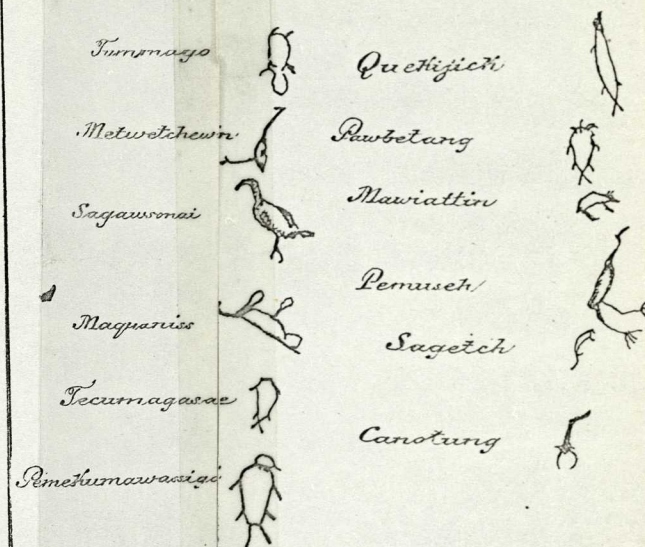 Tummago
Metwetchewin
Sagawsonai
Maquaniss
Tecumagasae
Pemekumawassigi
Quekijick
Pawbetang
Mawiattin
Pemuseh
Sagetch
Canotung